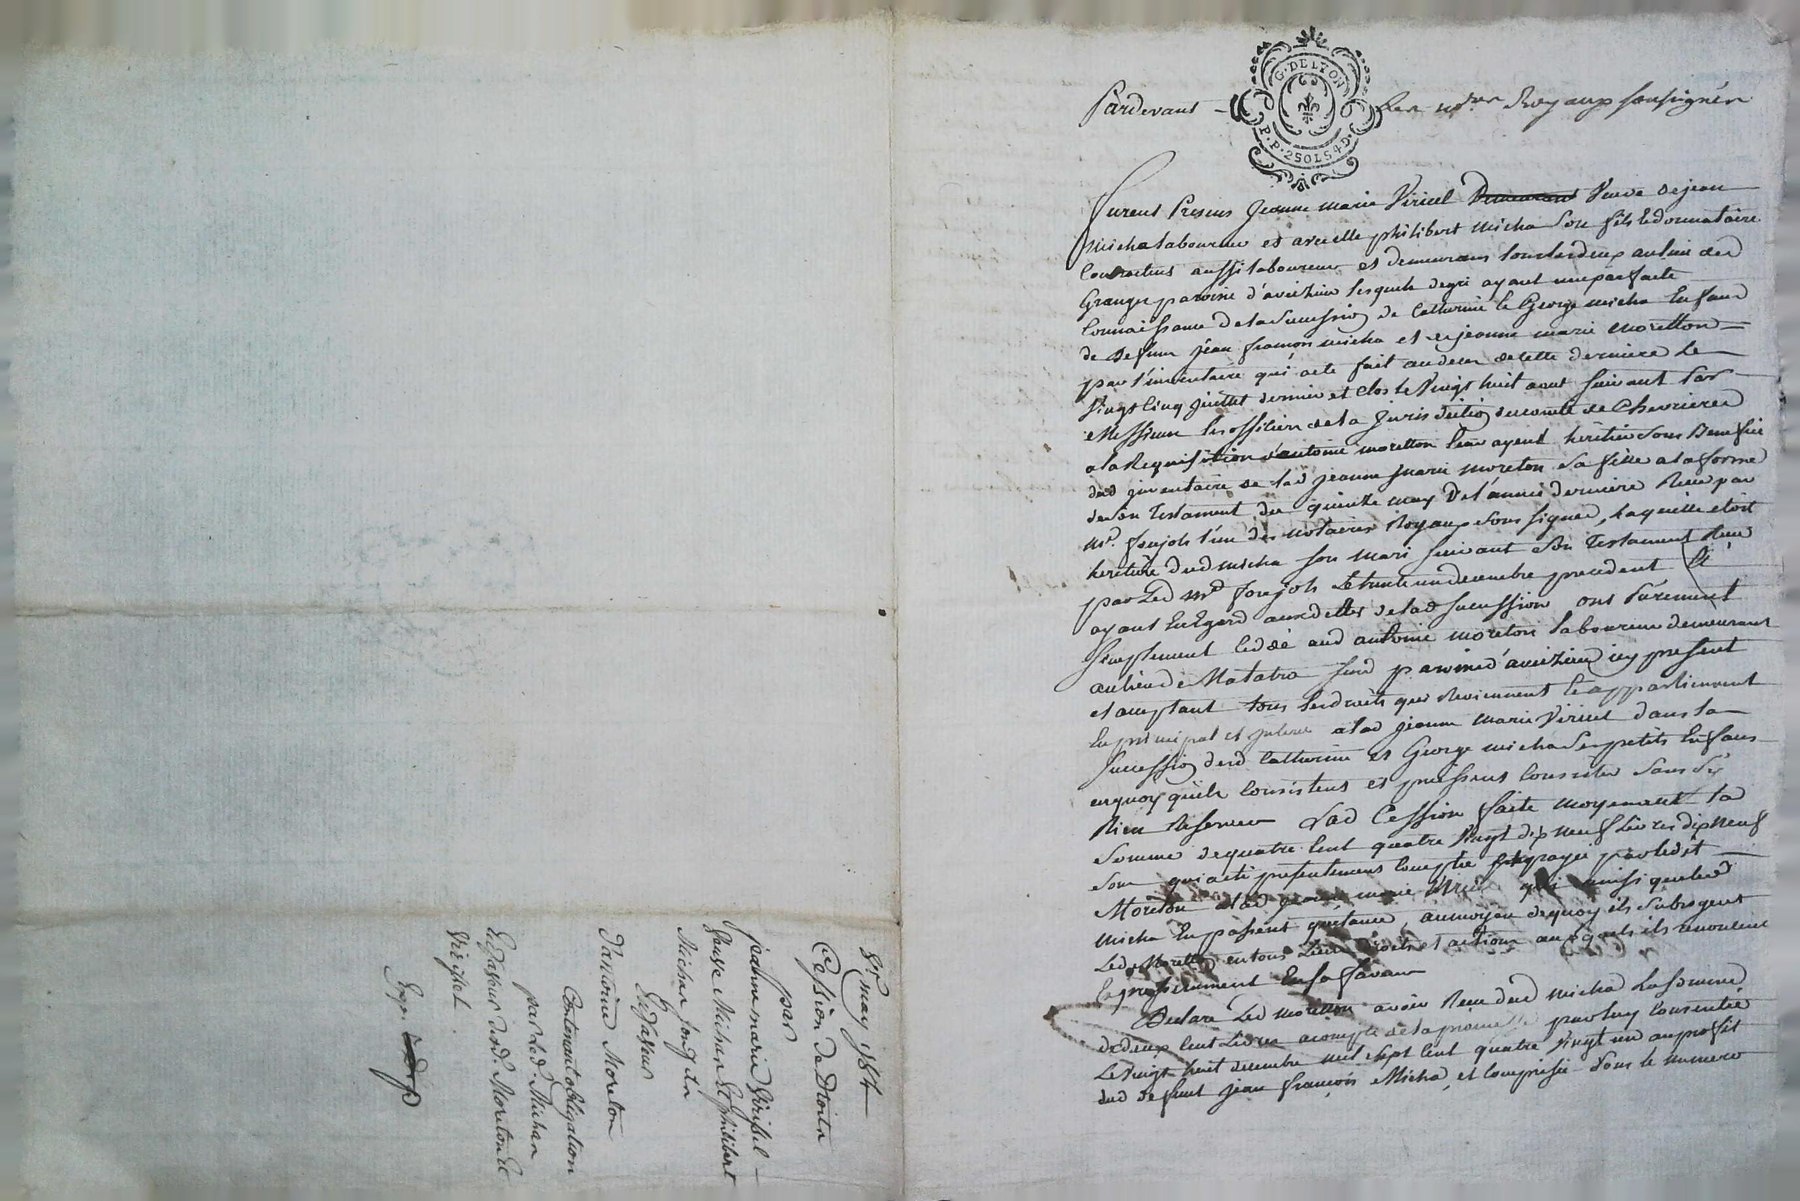 8e. may 1784
Cession de Droits
par
jeanne marie Virissel
Veuve Michas Et philibert
Michas son fils
En faveur
D'antoine Moreton
Contenant obligation
par led. Michas
En faveur dud. Moreton Et
Virissel
Expe.
G. DE LYON
P.P. 2 SOLS 4 D.
Pardevant Les nores Royaux soussignés
furent Presens Jeanne marie Viricel Veuve de jean
micha laboureur et avec elle philibert micha son fils Et donnataire
Contractuel aussi laboureur et demeurans tous les deux au lieu des
Granges paroisse d'aveizieu lesquels degré ayant une parfaite
Connaissance de la Succession de Catherine Et George micha Enfans
de Defunt jean francois micha et de jeanne marie Moretton
par l'inventaire qui a eté fait au deces de cette derniere Le
Vingt Cinq juillet dernier et Clos le Vingt huit aout suivant par
Messieurs les officiers de la jurisdiction du comté de Chevrieres
a la Requisition d'antoine moretton leur ayeul heritier sous Benefice
dud inventaire de lad jeanne Marie Moreton sa fille a la forme
de son Testament du quinze may de l'année derniere Reçu par
Me. foujols l'un des notaires Royaux sous signés, laquelle etoit
heritiere dud micha son mari suivant son Testament Reçu
par Led Me foujols Le trente un decembre precedent Et
ayant Eu Egard aux dettes de lad succession ont Purement
simplement cedé aud antoine moreton laboureur demeurant
au lieu de paroisse d'aveizieu icy present
et acceptant tous les droits qui Reviennent Et appartiennent
En principal et interets a lad jeanne Marie Viricel dans la
succession desd Catherine et George micha ses petits Enfans
en quoy qu'ils consistent et puissent consister sans s'y
Rien Reserver Lad Cession faite moyennant la
somme de quatre Cent quatre Vingt dix Neuf Livres dix Neuf
sous qui a eté presentement Comptée payée par ledit
Moreton a lad jeanne marie Viricel qui ainsi que led
micha En passent quittance, au moyen de quoy ils subrogent
Led Moretton en tous Leurs droits et actions auxquels ils renoncent
Expressement En sa faveur
Declare Led moretton avoir Reçu dud micha La somme
de deux Cent Livres a compte de la promesse par luy Consentie
Le Vingt huit decembre mil sept Cent quatre Vingt un au profit
dud defunt jean francois Micha, et Comprise sous le numero